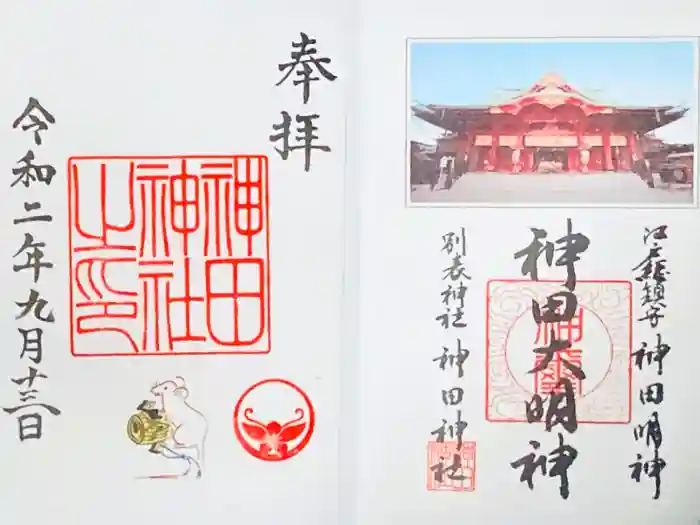 江戸總鎮守 神田明神
神田大明神
別表神社 神田神社
奉拝
神田
神社
之印
令和二年九月十三日